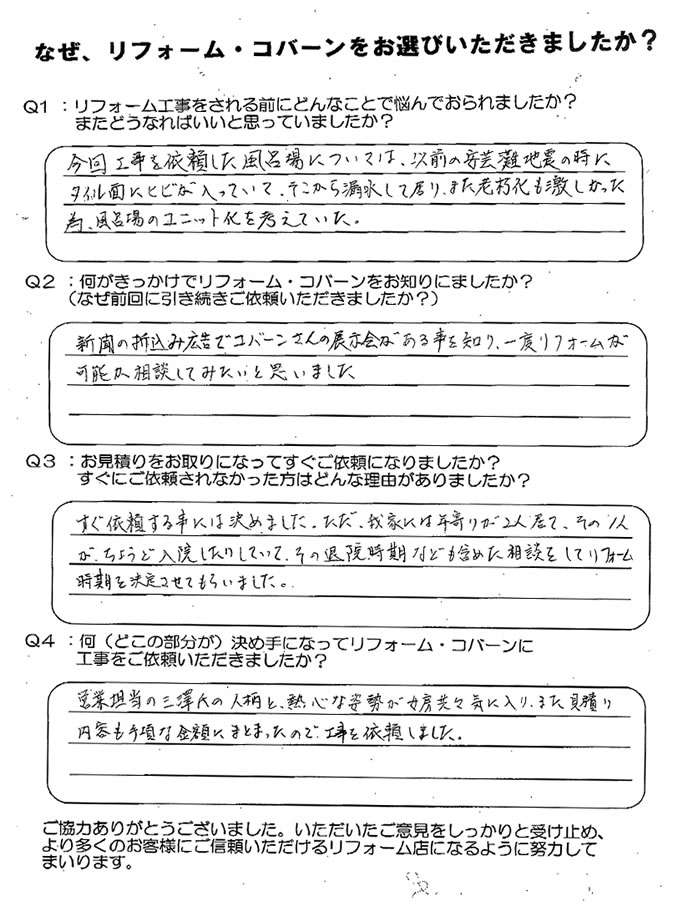 なぜ、リフォーム・コバーンをお選びいただきましたか？
Q1 ：リフォーム工事をされる前にどんなことで悩んでおられましたか？
またどうなればいいと思っていましたか？
今回工事を依頼した風呂場については、以前の安芸灘地震の時に
タイル面にヒビが入っていて、そこから漏水して居り、また老朽化も激しかった
為、風呂場のユニット化を考えていた。
Q2 ：何がきっかけでリフォーム・コバーンをお知りにましたか？
（なぜ前回に引き続きご依頼いただきましたか？）
新聞の折込み広告でコバーンさんの展示会がある事を知り、一度リフォームが
可能か相談してみたいと思いました
Q3 ：お見積りをお取りになってすぐご依頼になりましたか？
すぐにご依頼されなかった方はどんな理由がありましたか？
すぐ依頼する事には決めました。ただ、我家には年寄りが2人居て、その1人
が、ちょうど入院したりしていて、その退院時期なども含めた相談をしてリフォーム
時期を決定させてもらいました。
Q4 ：何（どこの部分が）決め手になってリフォーム・コバーンに
工事をご依頼いただきましたか？
営業担当の三澤氏の人柄と、熱心な姿勢が女房共々気に入り、また見積り
内容も手頃な金額にまとまったので、工事を依頼しました。
ご協力ありがとうございました。いただいたご意見をしっかりと受け止め、
より多くのお客様にご信頼いただけるリフォーム店になるように努力して
まいります。